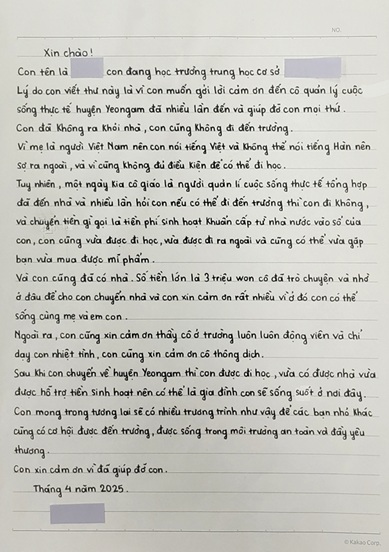 NO.
Xin chào!
Con tên là con đang học trường trung học cơ sở
Lý do con viết thư này là vì con muốn gởi lời cảm ơn đến cô quản lý cuộc
sống thực tế huyện Yeongam đã nhiều lần đến và giúp đỡ con mọi thứ.
Con đã Không ra Khỏi nhà, con cũng Không đi đến trường.
Vì mẹ là người Việt Nam nên con nói tiếng Việt và Không thể nói tiếng Hàn nên
sợ ra ngoài, và vì cũng Không đủ điều Kiện để có thể đi học.
Tuy nhiên, một ngày Kia cô giáo là người quản lí cuộc sống thực tế tổng hợp
đã đến nhà và nhiều lần hỏi con nếu có thể đi đến trường thì con đi Không,
và chuyển tiền gì gọi là tiền phí sinh hoạt Khuẩn cấp từ nhà nước vào sổ của
con, con cũng vừa được đi học, vừa được đi ra ngoài và cũng có thể vừa gặp
bạn vừa mua được mĩ phẩm.
Và con cũng đã có nhà. Số tiền lớn là 3 triệu won cô đã trò chuyện và nhờ
ở đâu để cho con chuyển nhà và con xin cảm ơn rất nhiều vì ở đó con có thể
sống cùng mẹ và em con.
Ngoài ra, con cũng xin cảm ơn thầy cô ở trường luôn luôn động viên và chỉ
dạy con nhiệt tình, con cũng xin cảm ơn cô thông dịch.
Sau Khi con chuyển về huyện Yeongam thì con được đi học, vừa có được nhà vừa
được hỗ trợ tiền Sinh hoạt nên có thể là gia đình con sẽ sống suốt ở nơi đây.
Con mong trong tương lai sẽ có nhiều trương trình như vậy để các bạn nhỏ Khác
cũng có cơ hội được đến trường, được sống trong môi trường an toàn và đầy yêu
thương.
Con xin cảm ơn vì đã giúp đỡ con.
Tháng 4 năm 2025.
© Kakao Corp.